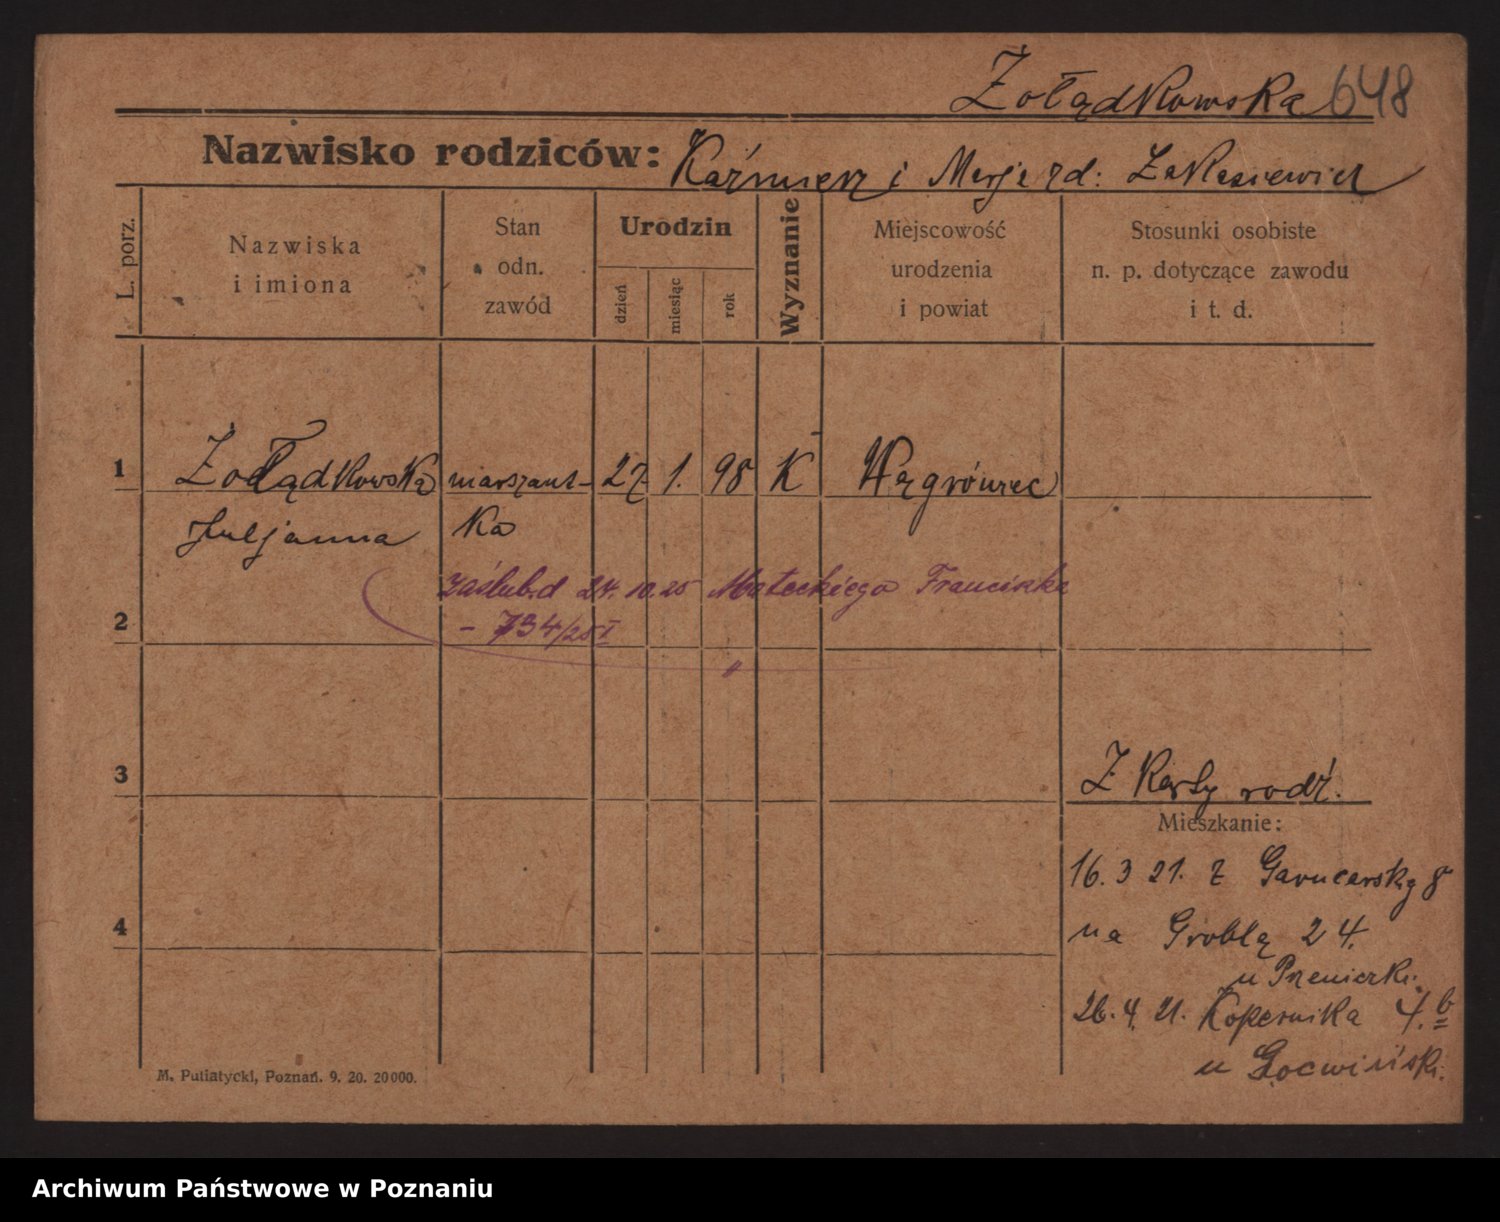 Żołądkowska 648
Nazwisko rodziców: Kaźmierz i Marja zd: Zakasiewicz
L. porz.
Nazwiska
i imiona
Stan
odn.
zawód
Urodzin
dzień
miesiąc
rok
Wyznanie
Miejscowość
urodzenia
i powiat
Stosunki osobiste
n. p. dotyczące zawodu
i t. d.
1 Żołądkowska marszant- 27 1. 98 K Wągrówiec
Juljanna ka
zaślub.d 24.10.25 Małeckiego Franciszka
2 - 734/25 I
3 Z Karty rodź.
Mieszkanie:
16. 3 21. z Garncarsky 8
4 na Groblą 24.
u
26. 4. 21. Kopernika 4. b
u
M. Putiatycki, Poznań. 9. 20. 20000.
Archiwum Państwowe w Poznaniu